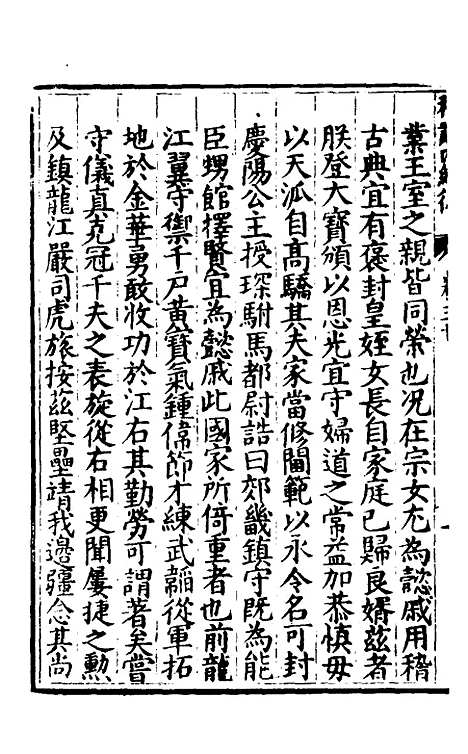 業王室之親皆同榮也况在宗女尤為懿戚用稽
古典宜有褒封皇姪女長自家庭已歸良婿兹者
朕登大寶頒以恩光宜守婦道之常益加恭慎毋
以天泒自高驕其夫家當修閫範以永令名可封
慶陽公主授琛駙馬都尉誥曰郊畿鎮守既為能
臣甥館擇賢宜為懿戚此國家所倚重者也前龍
江翼守禦千戶黃寶氣鍾偉節才練武韜從軍拓
地於金華勇敢收功於江右其勤勞可謂著矣嘗
守儀真克冠千夫之表旋從右相更聞屢捷之勲
及鎮龍江嚴司虎旅按兹堅壘靖我邊疆念其尚